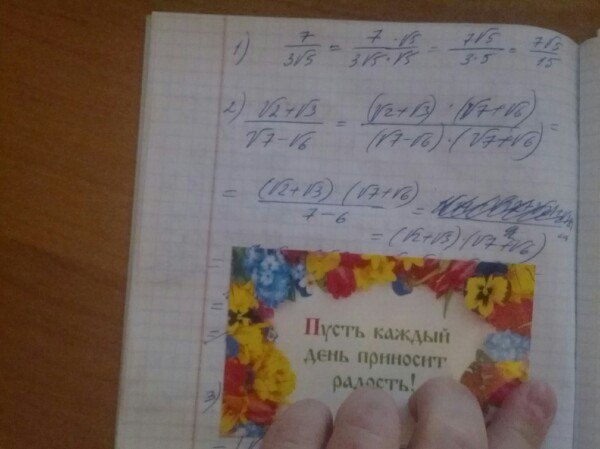 1) 7/3√5 = 7·√5/3√5·√5 = 7√5/3·5 = 7√5/15
2) √2+√3/√7-√6 = (√2+√3)·(√7+√6)/(√7-√6)·(√7+√6) =
= (√2+√3)(√7+√6)/7-6 =
= (√2+√3)·(√7+√6)
Пусть каждый
день приносит
радость!
3)